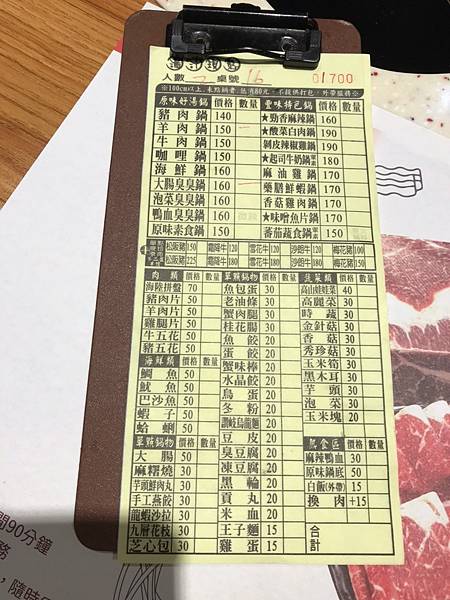 人數 2 桌號 16 01700
※100cm以上,未點鍋者,低消80元,不提供打包,外帶服務※
原味好湯鍋 價格 數量 豐味特色鍋 價格 數量
豬肉鍋 140 ★勁香麻辣鍋 160
羊肉鍋 150 ★酸菜白肉鍋 160
牛肉鍋 150 剝皮辣椒雞鍋 190
咖哩鍋 150 ★起司牛奶鍋 180
海鮮鍋 160 麻油雞鍋 170
大腸臭臭鍋 160 藥膳鮮蝦鍋 170
泡菜臭臭鍋 150 香菇雞肉鍋 170
鴨血臭臭鍋 150 ★味噌魚片鍋 170
原味素食鍋 150 蕃茄蔬食鍋 150
松阪豬 150 霜降牛 120 雪花牛 120 沙朗牛 120 梅花豬 100
松阪豬 225 霜降牛 180 雪花牛 180 沙朗牛 180 梅花豬 150
肉類 價格 數量 單點鍋物 價格 數量 蔬菜類 價格 數量
海陸拼盤 70 魚包蛋 30 高山娃娃菜 40
豬肉片 50 老油條 30 高麗菜 30
羊肉片 50 蟹肉腿 30 時蔬 30
雞腿片 50 桂花腸 30 金針菇 30
牛五花 50 魚餃 20 香菇 30
豬五花 50 蛋餃 20 秀珍菇 30
海鮮類 價格 數量 蟹味棒 20 玉米筍 30
鯛魚 50 水晶餃 20 黑木耳 30
魷魚 50 鳥蛋 20 芋頭 30
巴沙魚 50 冬粉 20 泡菜 30
蝦子 50 讚岐烏龍麵 20 玉米塊 20
蛤蜊 50 豆皮 20
單點鍋物 價格 數量 臭豆腐 20 熟食區 價格 數量
大腸 50 凍豆腐 20 麻辣鴨血 30
麻糬燒 30 黑輪 20 原味鍋底 50
芋頭鮮肉丸 30 貢丸 20 白飯(外帶) 15
手工燕餃 30 米血 20 換肉 +15
龍蝦沙拉 30 王子麵 15 合計
九層花枝 30 雞蛋 15
芝心包 30
間90分鐘
務
,隨時